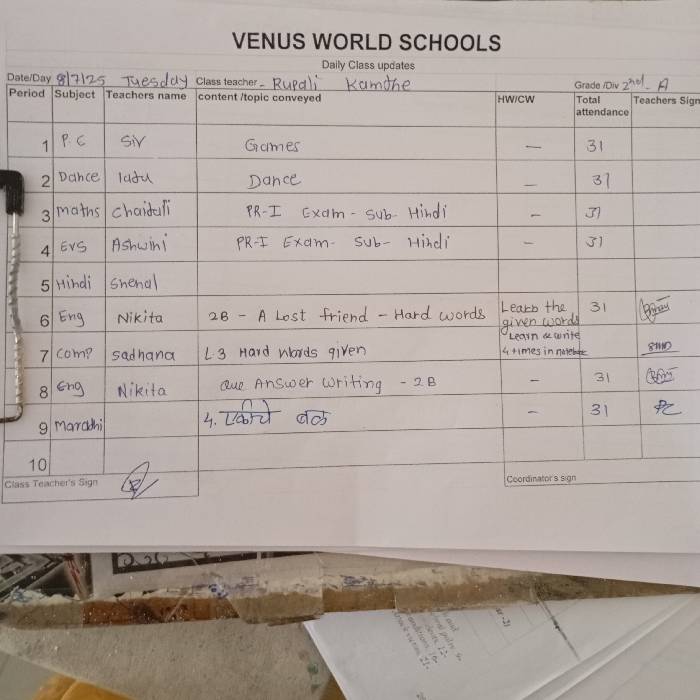 VENUS WORLD SCHOOLS
Daily Class updates
Date/Day 8/7/25 Tuesday Class teacher - Rupali Kamthe Grade /Div 2nd - A
Period Subject Teachers name content /topic conveyed HW/CW Total attendance Teachers Sign
1 P.C Sir Games — 31
2 Dance Dance — 31
3 Maths Chaitali PR-I Exam - Sub- Hindi - 31
4 EVS Ashwini PR-I Exam- Sub- Hindi - 31
5 Hindi Snehal
6 Eng Nikita 2B - A Lost friend - Hard words Learn the given words 31
7 Comp sadhana L3 Hard words given Learn & write 4 times in notebook
8 Eng Nikita Que Answer Writing - 2B - 31
9 Marathi 4. - 31
10
Class Teacher's Sign Coordinator's sign